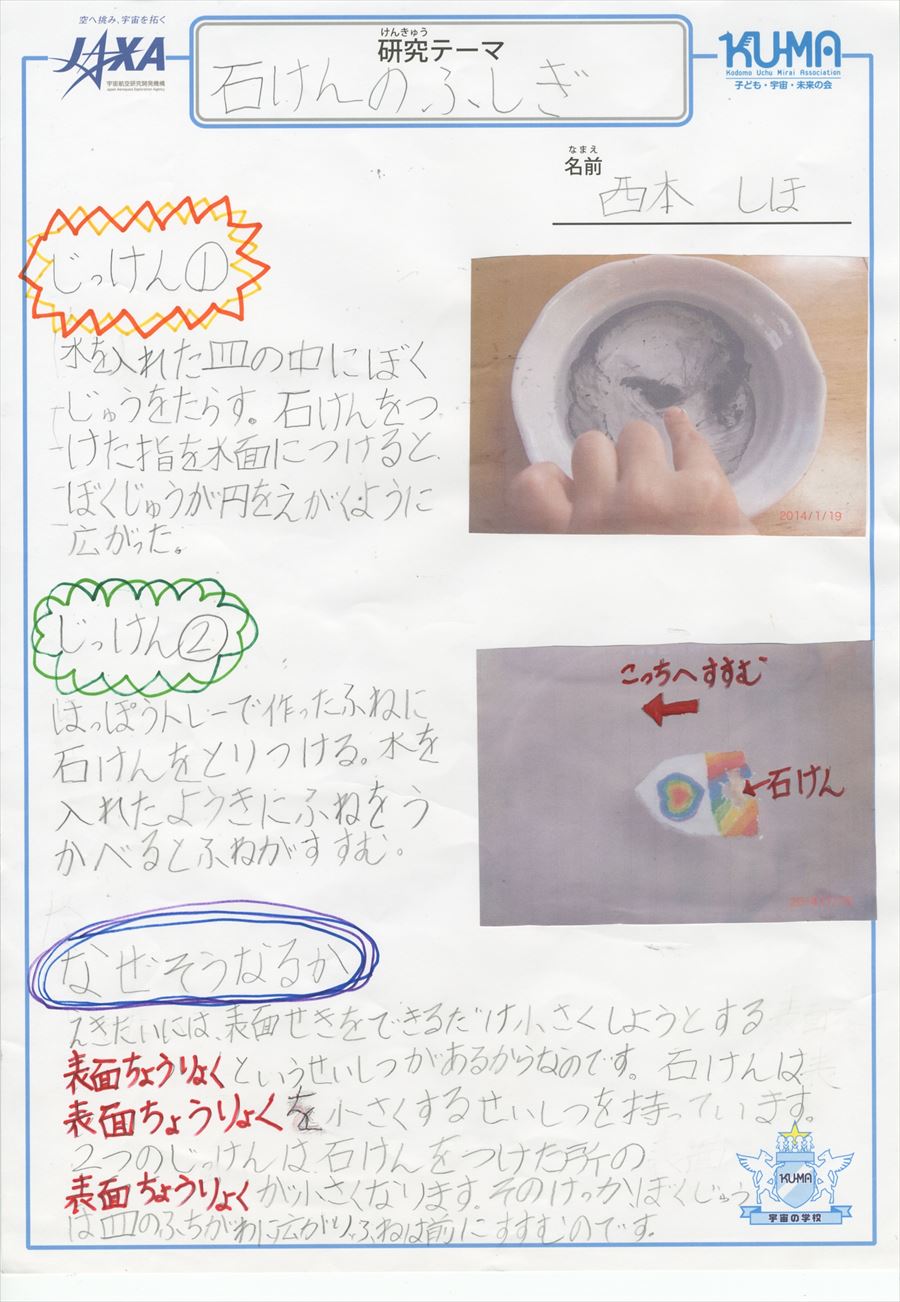 空へ挑み、宇宙を拓く
JAXA
宇宙航空研究開発機構
Japan Aerospace Exploration Agency
けんきゅう
研究テーマ
石けんのふしぎ
KU-MA
Kodomo Uchu Mirai Association
子ども・宇宙・未来の会
なまえ
名前
西本 しほ
じっけん①
水を入れた皿の中にぼく
じゅうをたらす。石けんをつ
けた指を水面につけると
ぼくじゅうが円をえがくように
広がった。
2014/1/19
じっけん②
はっぽうトレーで作ったふねに
石けんをとりつける。水を
入れたようきにふねをう
かべるとふねがすすむ。
こっちへすすむ
石けん
なぜそうなるか
えきたいには、表面せきをできるだけ小さくしようとする
表面ちょうりょくというせいしつがあるからなのです。石けんは
表面ちょうりょくを小さくするせいしつを持っています。
2つのじっけんは石けんをつけた所の
表面ちょうりょくが小さくなります。そのけっかぼくじゅう
は皿のふちがわに広がりふねは前にすすむのです。
KU-MA
宇宙の学校